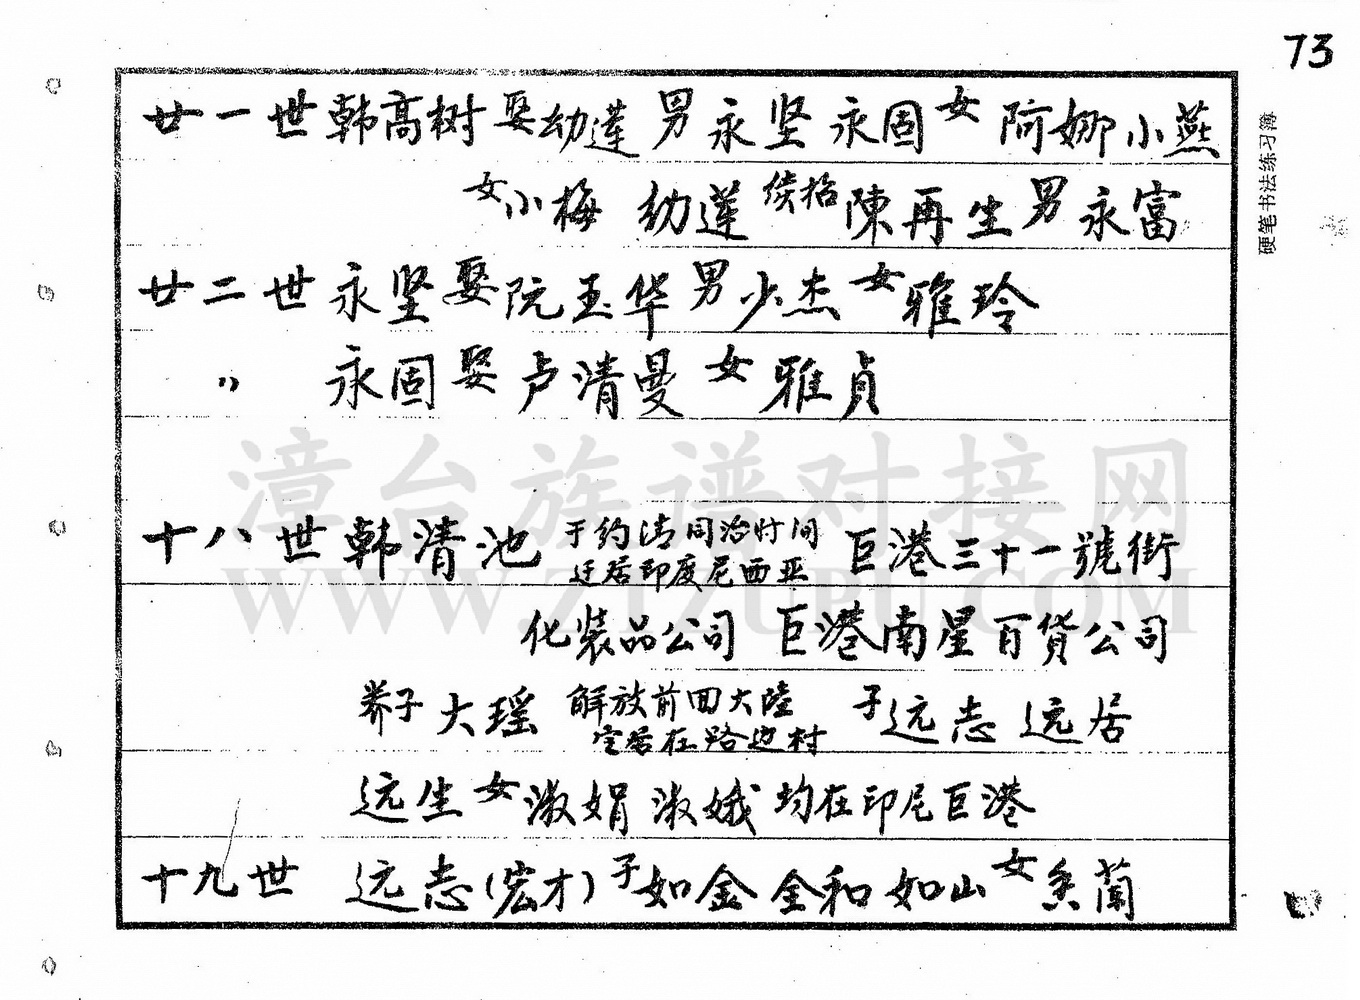 73
硬笔书法练习簿
廿一世韩高树娶幼莲男永坚永固女阿娜小燕
女小梅 幼莲续招陳再生男永富
廿二世永坚娶阮玉华男少杰女雅玲
〃 永固娶卢清曼女雅貞
漳台族谱对接网
WWW.ZTZUPU.COM
十八世韩清池 于约清同治时间 巨港三十一號街
迁居印度尼西亚
化装品公司 巨港南星百貨公司
养子大瑶 解放前回大陸 子远志远居
定居在路边村
远生女淑娟淑娥均在印尼巨港
十九世 远志(宏才)子如金全和如山女美蘭